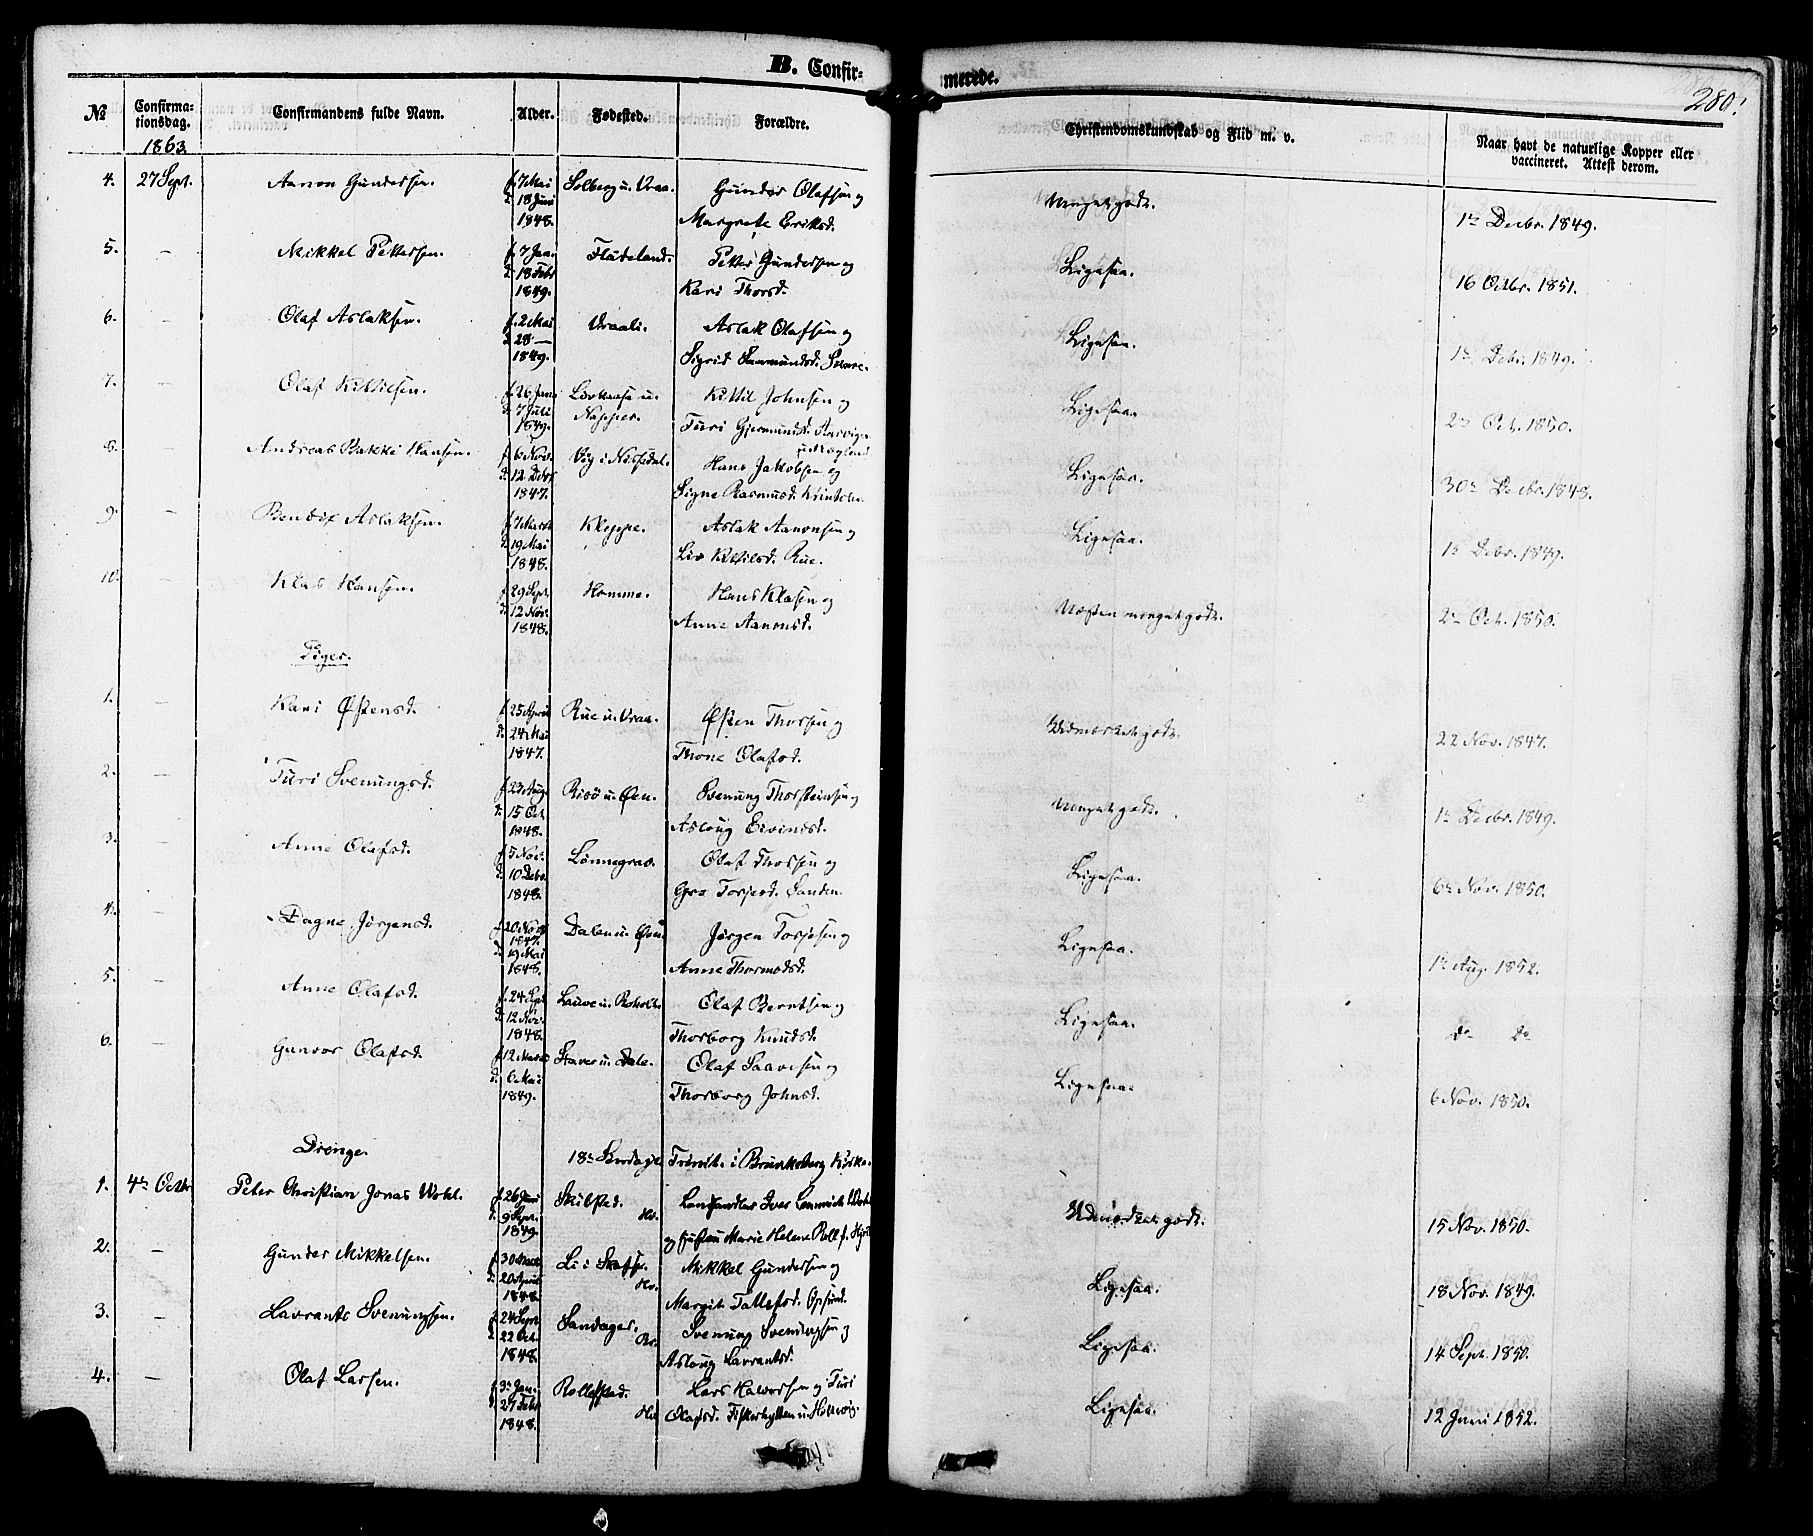 B. Confir-
merede.
280.
№ Confirmationsdag. Confirmandens fulde Navn. Alder. Fødested. Forældre. Christendomskundskab og Flid m. v. Naar havt de naturlige Kopper eller vaccineret. Attest derom.
1863
4. 27 Sept. Aanon Gundersen. f. 7 Mai Solberg u. Vraa. Gunder Olafsen og Meget godt. 1ste Decbr. 1849.
d. 18 Juni 1848. Margrete Eriksd.
5. — Mikkel Pettersen. f. 7 Jan. Fladeland. Petter Gundersen og Ligesaa. 16 Octbr. 1851.
d. 18 Febr 1849. Kari Thorsd.
6. — Olaf Aslaksen. f. 2 Mai Vraali. Aslak Olafsen og Ligesaa. 1ste Debr. 1849.
d. 28 — 1849. Sigrid
7. — Olaf Kittilsen. f. 26 Jan. u. Napper. Kittil Johnsen og Ligesaa. 2den Oct. 1850.
d. 7 Juli 1849. Turi Gjermundsd.
8. — Andreas Bakke Hansen. f. 6 Nov. Vig i Nissedal. Hans Jakobsen og Ligesaa. 30te Decbr. 1848.
d. 12 Debr 1847. Signe Rasmusd.
9. — Bendix Aslaksen. f. 7 Marts Kleppe. Aslak Aanonsen og Ligesaa. 1ste Debr. 1849.
d. 19 Mai 1848. Liv Kittilsd. Rue.
10. — Klas Hansen. f. 29 Sept. Homme. Hans Klasen og Næsten meget godt. 2den Oct. 1850.
d. 12 Nov. 1848. Anne Aanonsd.
Piger.
1. — Kari Østensd. f. 25 April Rue u. Vraa. Østen Thorsen og Udmærket godt. 22 Nov. 1847.
d. 24 Mai 1847. Thone Olafsd.
2. — Turi Svenungsd. f. 23 Aug. Risö u. Øen. Svenung Thorsteinsen og Meget godt. 1ste Decbr. 1849.
d. 15 Oct. 1848. Aslaug Eivindsd.
3. — Anne Olafsd. f. 5 Nov. Lønnegrav. Olaf Thorsen og Ligesaa. 6te Nov. 1850.
d. 10 Debr. 1848. Gro Torjesd. Sanden.
4. — Dagne Jørgensd. f. 20 Nov 1847. Dalen u. Øen. Jørgen Torjesen og Ligesaa. 1ste Aug. 1852.
d. 19 Mai 1848. Anne Thormodsd.
5. — Anne Olafsd. f. 24 Sept Lauve u. Roholt. Olaf Berntsen og Ligesaa. do do
d. 12 Nov. 1848. Thorborg Knudsd.
6. — Gunvor Olafsd. f. 12 Marts u. Dale. Olaf Saavesen og Ligesaa. 6 Nov. 1850.
d. 6 Mai 1849. Thorborg Johnsd.
Drenge. 18de Søndag e. Trinit. i Brunkeberg Kirke.
1. 4de Octbr Peter Christian Jonas Wohl. f. 26 Juni Skilstad. Hv. Landhandler Iver Udmærket godt. 15 Nov. 1850.
d. 9 Sept. 1849. og Hustru Marie Helene
2. — Gunder Mikkelsen. f. 30 Marts Li i Hv. Mikkel Gundersen og Ligesaa. 18 Nov. 1849.
d. 20 April 1848. Margit
3. — Lavrants Svenungsen. f. 24 Sept Sandager. Br. Svenung Svenungsen og Ligesaa. 14 Sept. 1850.
d. 22 Oct. 1848. Aslaug Lavrantsd.
4. — Olaf Larsen. f. 3 Jan. Rollefstad. Hv. Lars Halvorsen og Turi Ligesaa. 12 Juni 1852.
d. 27 Febr 1848. Olafsd. Fiskerhytten u.